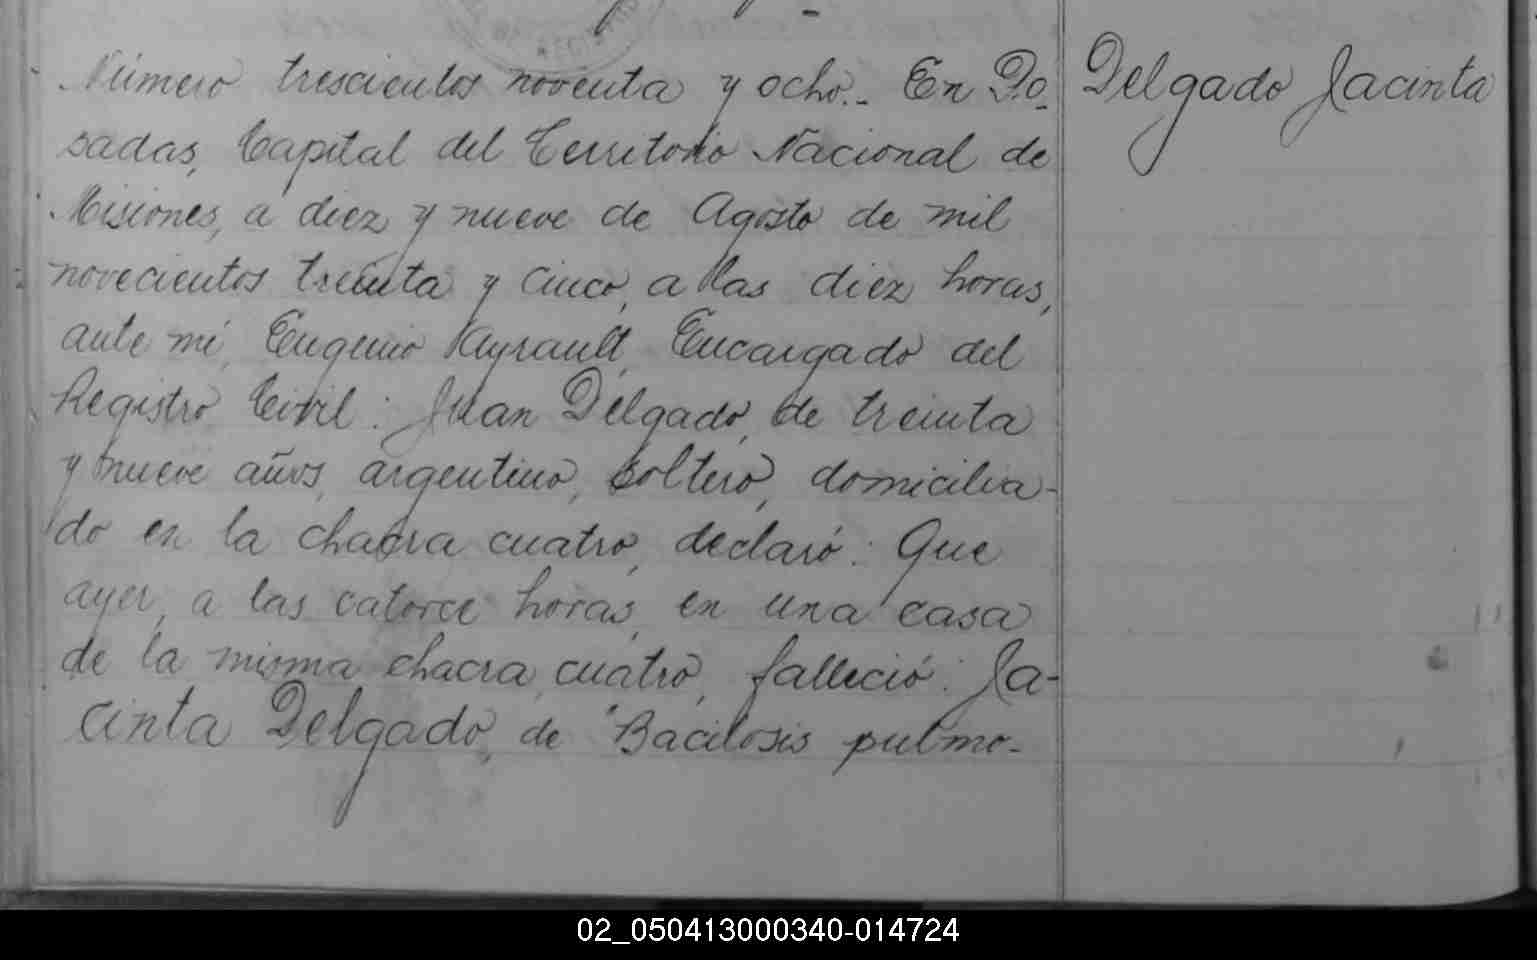 Número trescientos noventa y ocho.- En Po-
sadas, Capital del Territorio Nacional de
Misiones, a diez y nueve de Agosto de mil
novecientos treinta y cinco, a las diez horas,
ante mí, Eugenio Ayrault, Encargado del
Registro Civil: Juan Delgado, de treinta
y nueve años, argentino, soltero, domicilia-
do en la chacra cuatro, declaró: Que
ayer, a las catorce horas, en una casa
de la misma chacra cuatro, falleció: Ja-
cinta Delgado, de "Bacilosis pulmo-
Delgado Jacinta
02_050413000340-014724